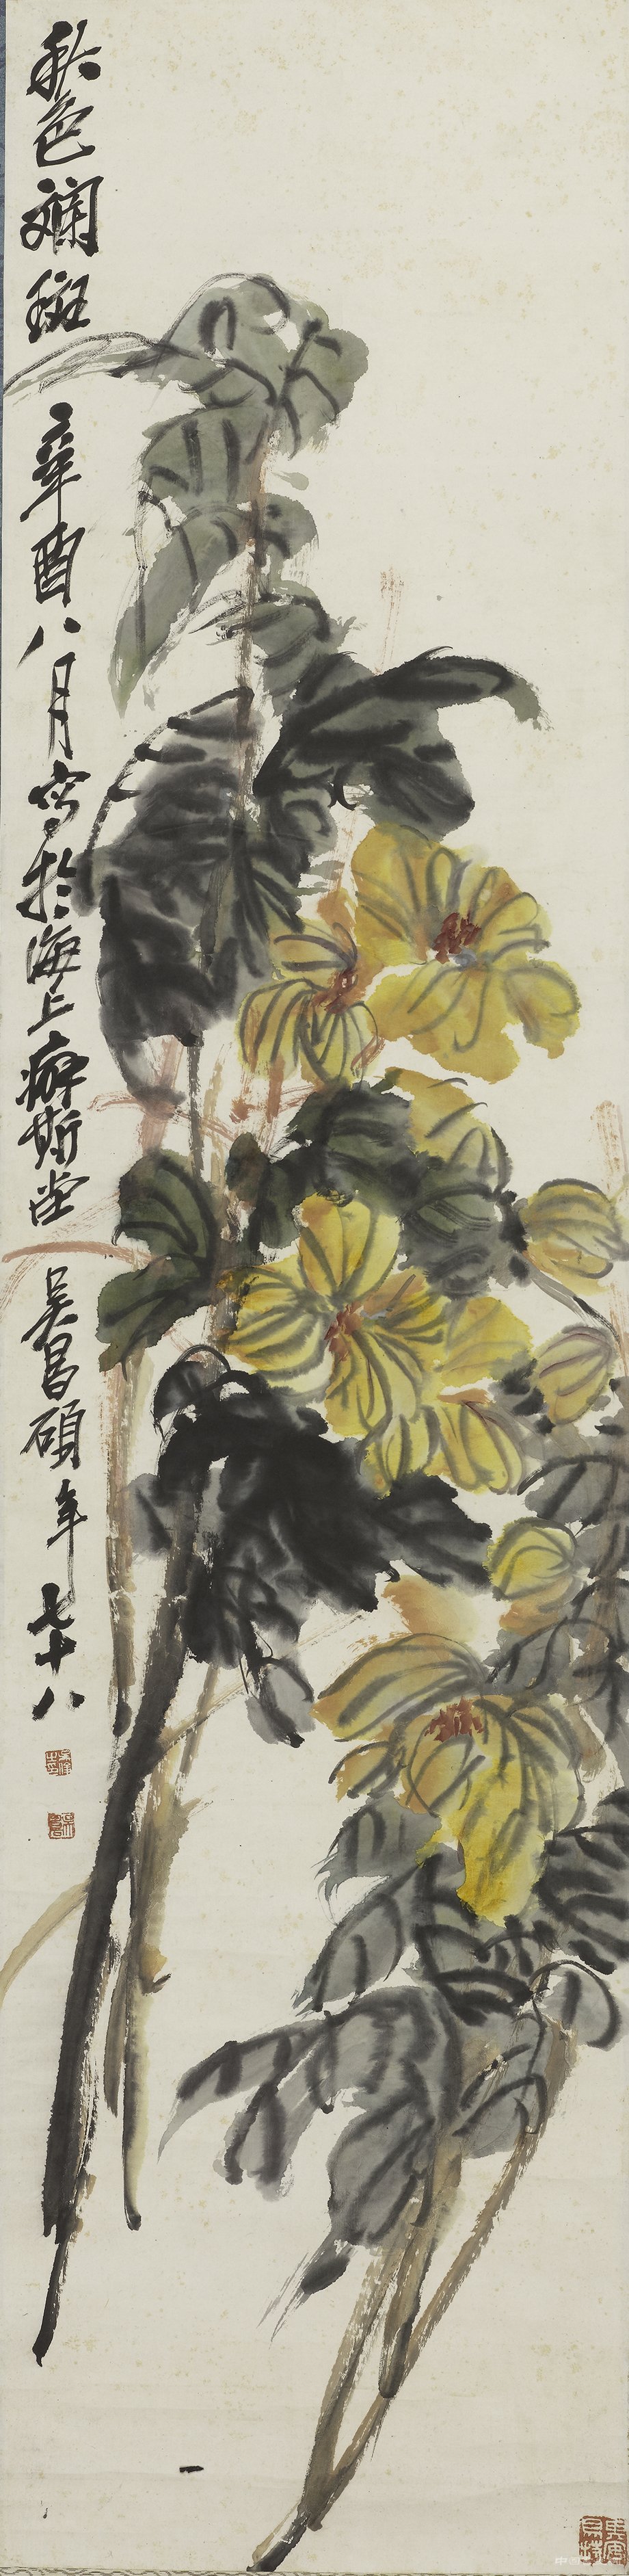 秋色斓斑
辛酉八月写於海上癖斯堂
吴昌硕年七十八